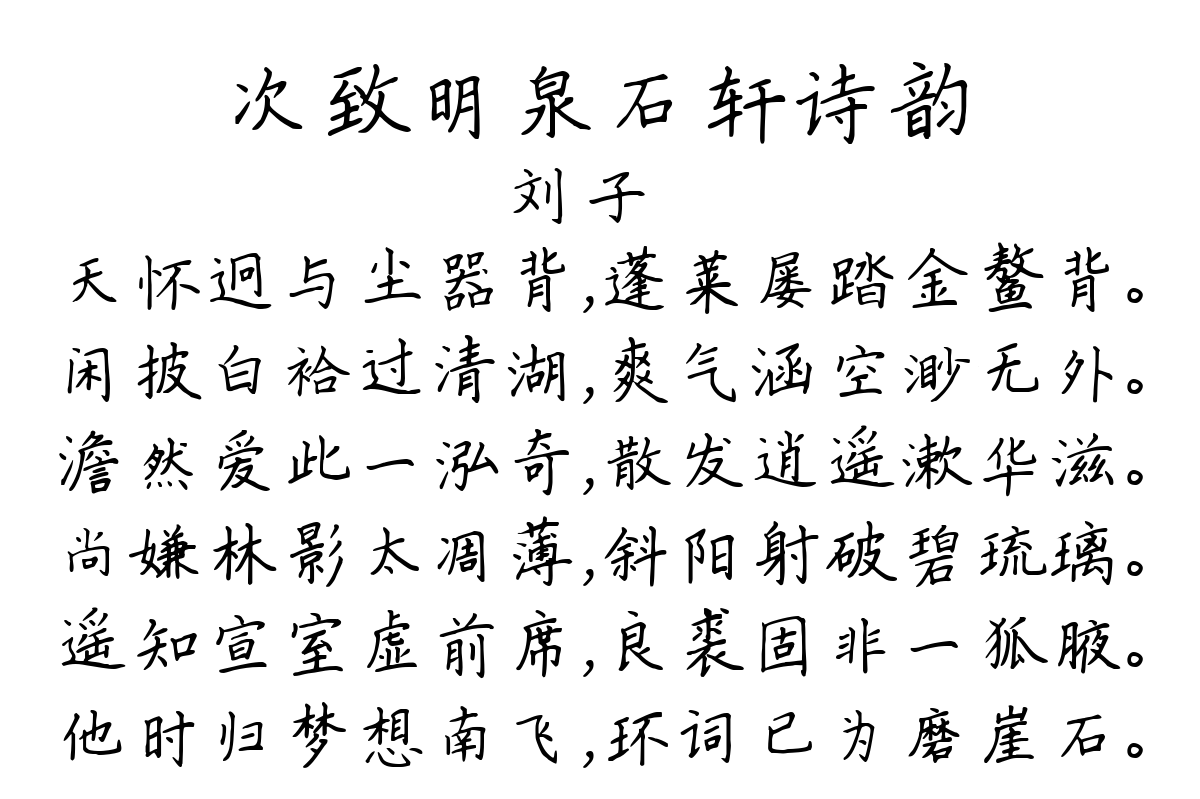 次致明泉石轩诗韵
刘子
天怀迥与尘嚣背,蓬莱屡踏金鳌背。
闲披白袷过清湖,爽气涵空渺无外。
澹然爱此一泓奇,散发逍遥漱华滋。
尚嫌林影太凋薄,斜阳射破碧琉璃。
遥知宣室虚前席,良裘固非一狐腋。
他时归梦想南飞,环词已为磨崖石。